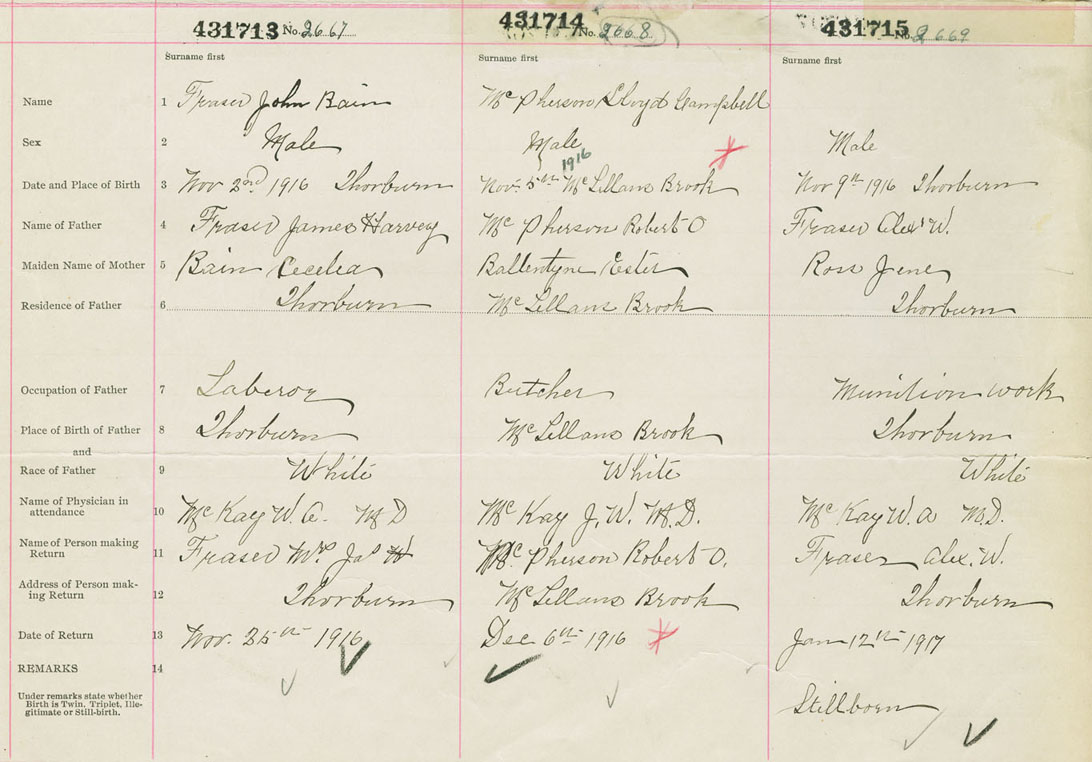 431713 No. 2667 431714 No. 2668 431715 No. 2669
Surname first Surname first Surname first
Name 1 Fraser John Bain McPherson Lloyd Campbell
Sex 2 Male Male Male
1916
Date and Place of Birth 3 Nov 2nd 1916 Thorburn Nov. 5th McLellans Brook Nov 9th 1916 Thorburn
Name of Father 4 Fraser James Harvey McPherson Robert O Fraser Alex W.
Maiden Name of Mother 5 Bain Cecelia Ballentyne Ester Ross Jene
Residence of Father 6 Thorburn McLellans Brook Thorburn
Occupation of Father 7 Laberor Butcher Munition work
Place of Birth of Father 8 Thorburn McLellans Brook Thorburn
and
Race of Father 9 White White White
Name of Physician in
attendance 10 McKay W. A. M D McKay J. W. M.D. McKay W. A M.D.
Name of Person making
Return 11 Fraser Mrs Jas H McPherson Robert O. Fraser Alex. W.
Address of Person mak-
ing Return 12 Thorburn McLellans Brook Thorburn
Date of Return 13 Nov. 25th 1916 Dec 6th 1916 Jan 12th 1917
REMARKS 14
Under remarks state whether
Birth is Twin, Triplet, Ille-
gitimate or Still-birth.
Stillborn